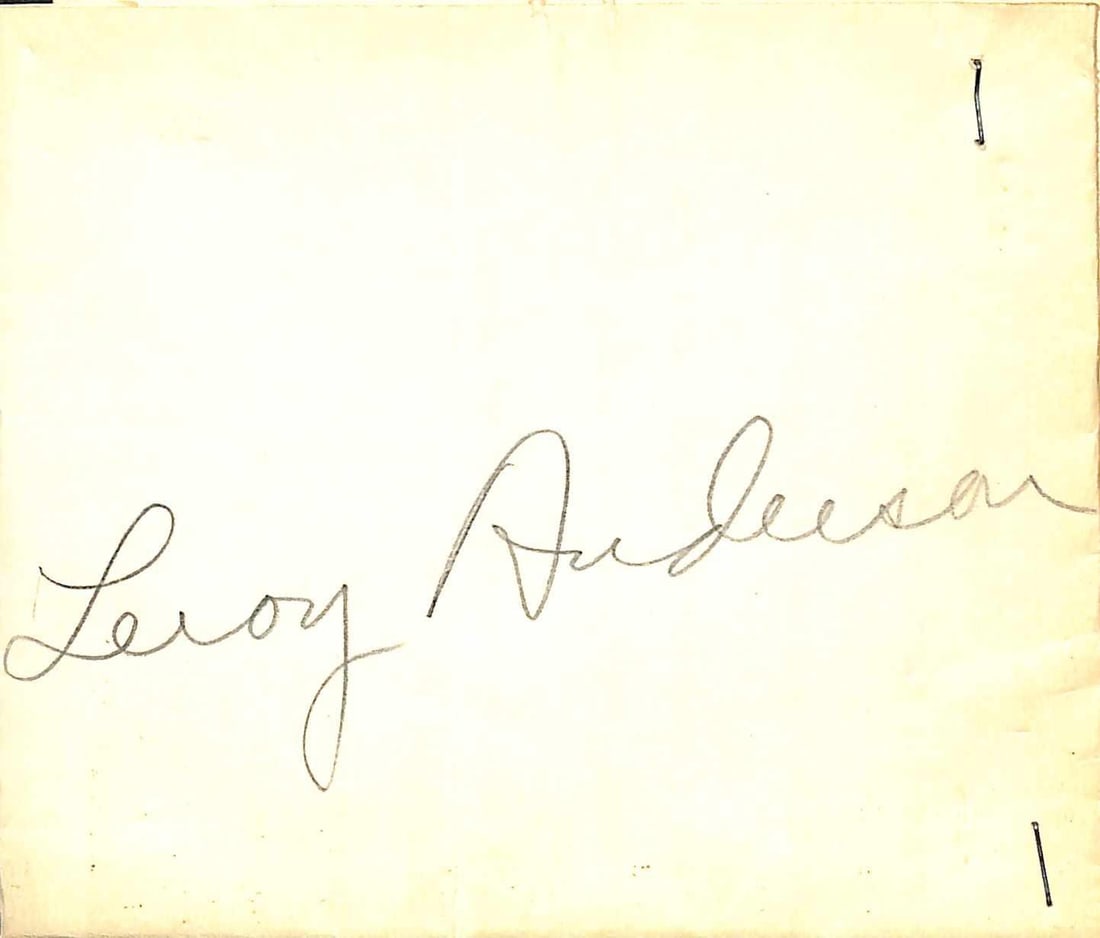 Leroy Anderson